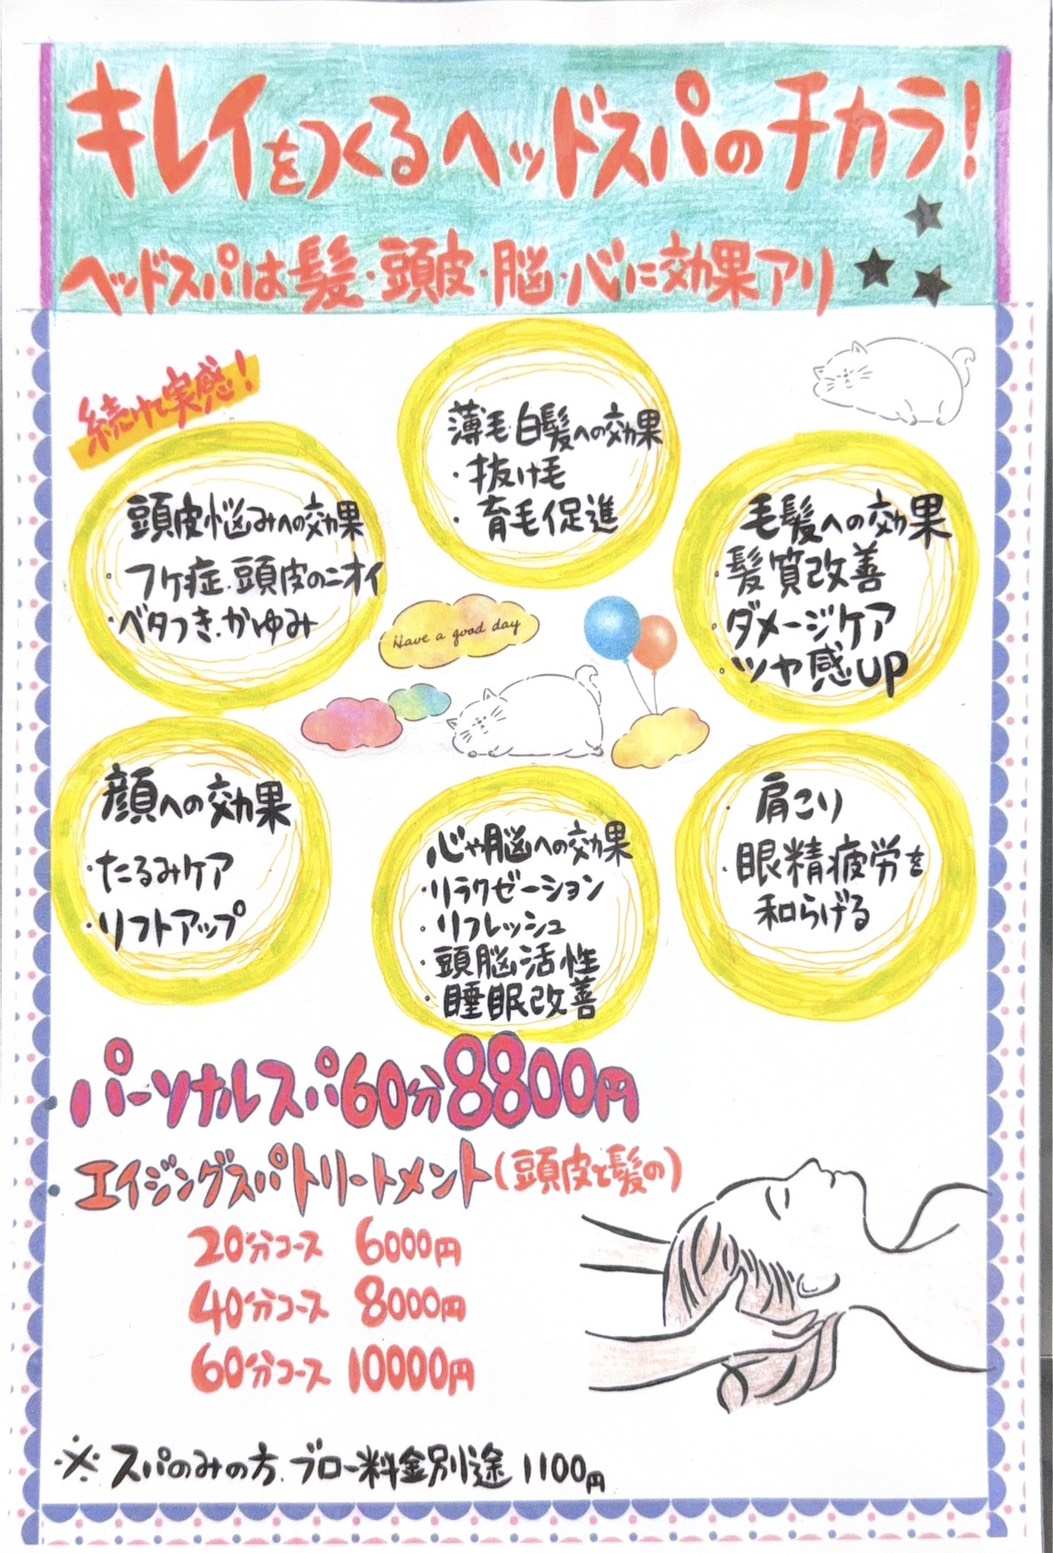 キレイをつくるヘッドスパのチカラ!
ヘッドスパは髪・頭皮・脳・心に効果アリ
続けて実感!
薄毛白髪への効果
・抜け毛
・育毛促進
頭皮悩みへの効果
・フケ症.頭皮のニオイ
・ベタつき.かゆみ
毛髪への効果
・髪質改善
・ダメージケア
・ツヤ感UP
Have a good day
顔への効果
・たるみケア
・リフトアップ
心や脳への効果
・リラクゼーション
・リフレッシュ
・頭脳活性
・睡眠改善
・肩こり
・眼精疲労を
和らげる
パーソナルスパ60分8800円
エイジングスパトリートメント(頭皮と髪の)
20分コース 6000円
40分コース 8000円
60分コース 10000円
※スパのみの方.ブロー料金別途1100円